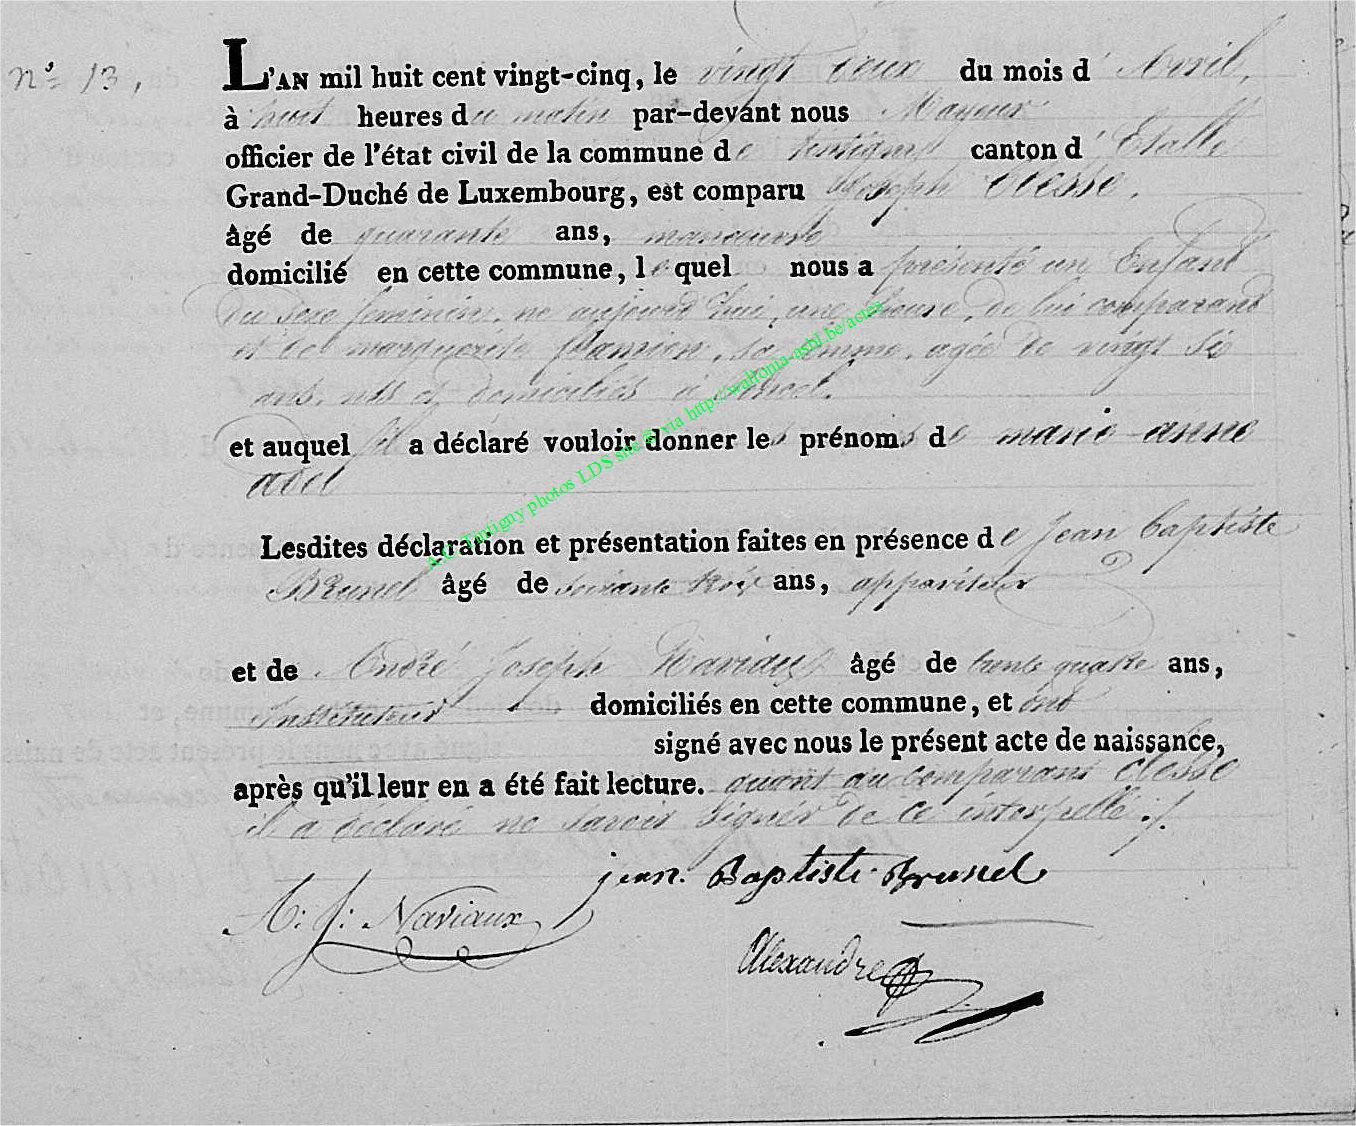 n° 13,
L'AN mil huit cent vingt-cinq, le vingt deux du mois d'Avril,
à huit heures du matin par-devant nous Mayeur
officier de l'état civil de la commune de tintigny canton d'Etalle
Grand-Duché de Luxembourg, est comparu Joseph Clesse,
âgé de quarante ans, manoeuvre
domicilié en cette commune, lequel nous a présenté un Enfant
du sexe feminin, né aujourd'hui, une heure, de lui comparant
et de marguerite, sa femme, agée de vingt six
ans, nés et domiciliés à
et auquel il a déclaré vouloir donner les prénoms de marie-anne
adel
Lesdites déclaration et présentation faites en présence de Jean Baptiste
Brunel âgé de soixante trois ans, appariteur
et de André Joseph Naviaux âgé de trente quatre ans,
Instituteur domiciliés en cette commune, et ont
signé avec nous le présent acte de naissance,
après qu'il leur en a été fait lecture. quant au comparant Clesse
il a déclaré ne savoir signer de ce interpellé ./.
jean. Baptiste. Brunel
A: J: Naviaux
Alexandre
A.G. Tintigny photos LDS site & via http://wallonia-asbl.be/actes